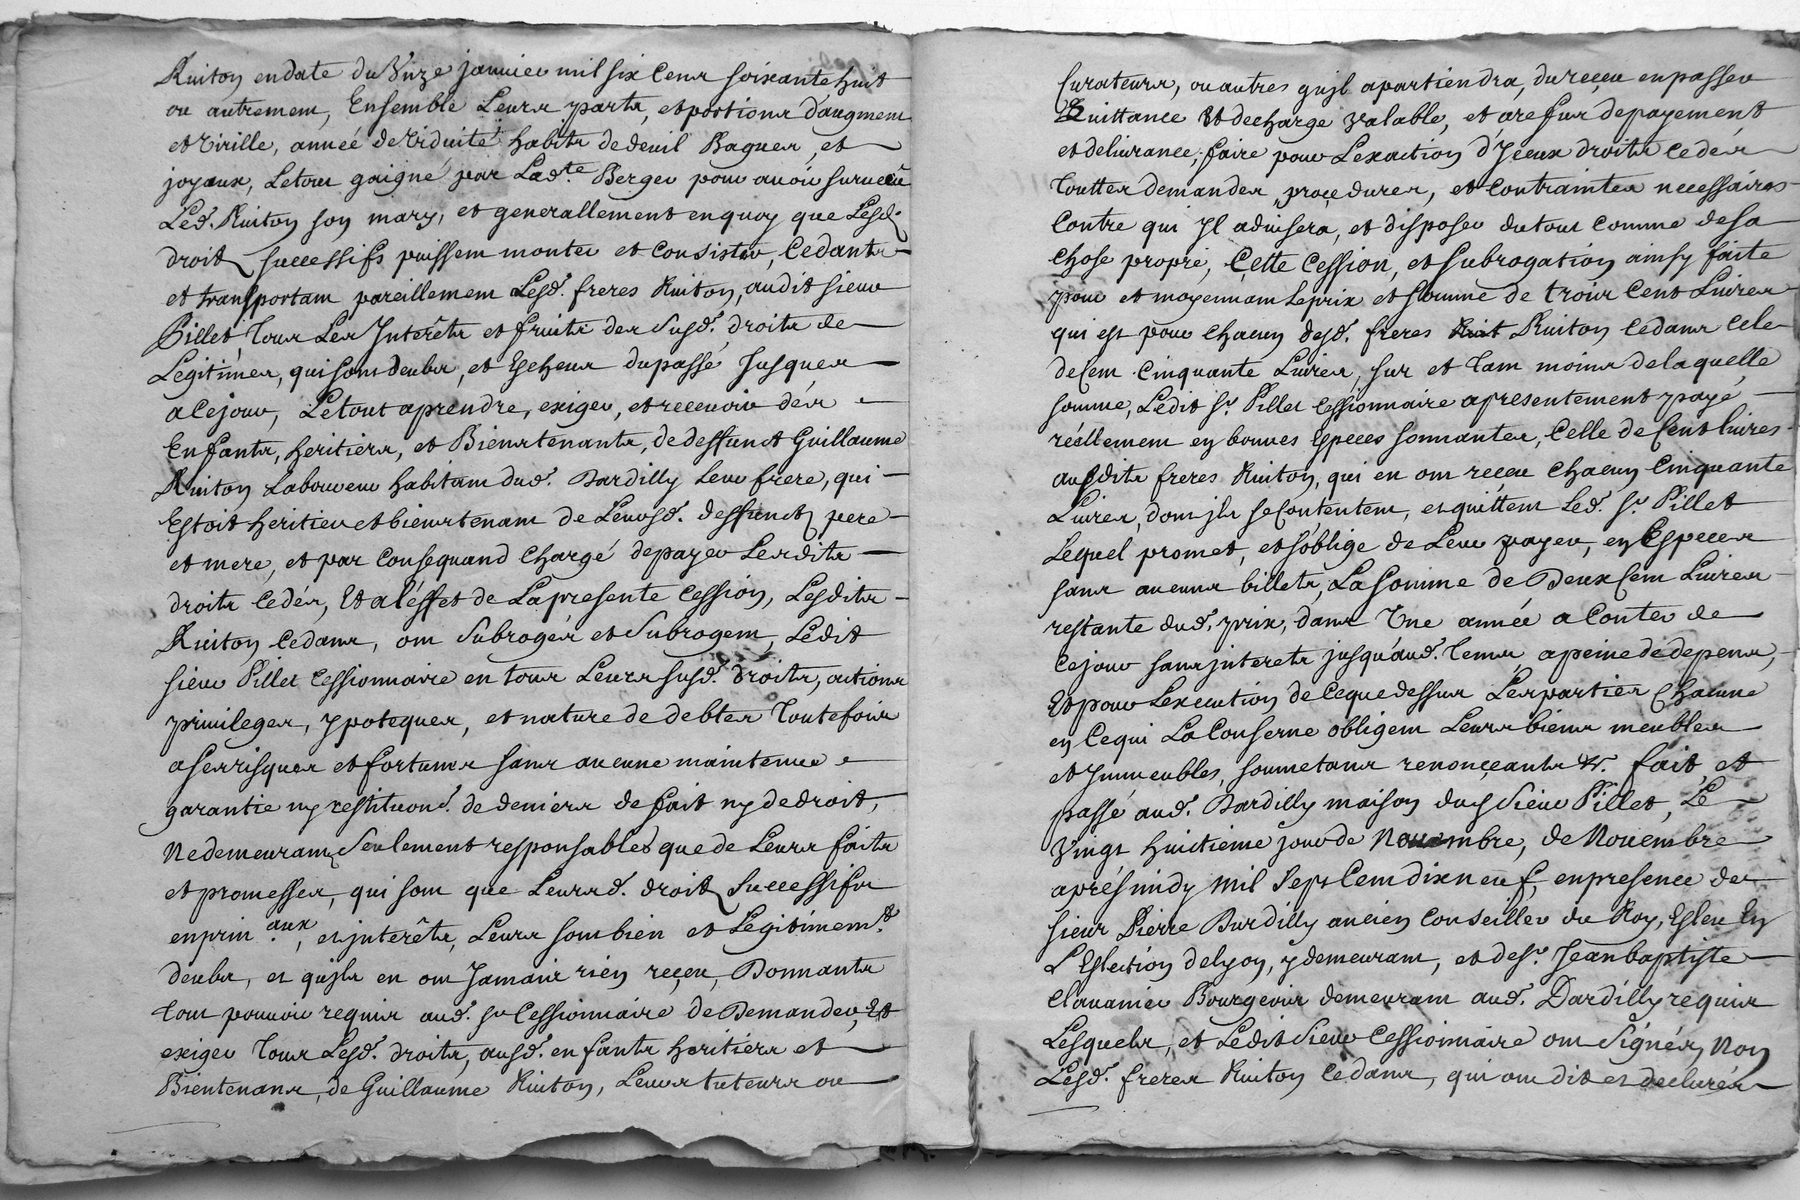 Ruiton en date du Unze janvier mil six cens soixante huit
ou autrement, Ensemble Leurs parts, et portions d'augment
et virille, année de viduité habits de deuil Bagues, et
joyaux, Le tout gaigné par Lad.te Berger pour avoir survecu
Led. Ruiton son mary, et generallement en quoy que Lesd.
droits successifs puissent monter et consister, Cedants
et transportant pareillement Lesd. freres Ruiton, audit sieur
Pillet, Tous Les Interêts et fruits des susd. droits de
Legitimes, qui sont deubs, et Escheus du passé Jusques
a ce jour, Le tout a prendre, exiger, et recevoir dés
Enfants, heritiers, et Bienstenants, de deffunct Guillaume
Ruiton Laboureur habitant dud. Dardilly Leur frere, qui
Estoit heritier et bienstenant de Leursd. deffuncts pere
et mere, et par Consequand Chargé de payer Lesdits
droits Cedés, Et a l'éffet de La presente Cession, Lesdits
Ruiton Cedans, ont Subrogés et Subrogent, Ledit
sieur Pillet Cessionnaire en tous Leurs susd. droits, actions
privileges, ypoteques, et nature de debtes Toutefois
a ses risques et fortunes sans aucune maintenue
garantie ny restituon. de deniers de fait ny de droit,
Ne demeurant Seulement responsables que de Leurs faits
et promesses, qui sont que Leursd. droits Successifs
en prin.aux, et interêts, Leurs sont bien et Legitimem.t
deubs, et qu'ils en ont Jamais rien reçeu, Donnants
tout pouvoir requis aud. sr Cessionnaire de Demander, Et
exiger Tous Lesd. droits, ausd. enfants heritiers et
Bientenans, de Guillaume Ruiton, Leurs tuteurs ou
Curateurs, ou autres qu'jl apartiendra, du reçeu en passer
Quittance Et decharge valable, et a refus de payement
et delivrance, faire pour L'exaction d'Jceux droits cedés
Touttes demandes, proçedures, et Contraintes necessaires
Contre qui Jl advisera, et disposer du tout comme de sa
chose propre, Çette Cession, et subrogation ainsy faite
pour et moyennant Le prix et somme de trois Cent Livres
qui est pour chacun desd. freres Ruiton Cedans Cele
de Cent Cinquante Livres, sur et tant moins de laquelle
somme, Ledit sr. Pillet Cessionnaire a presentement payé
réellement en bonnes Especes sonnantes, Celle de Cent livres
ausdits freres Ruiton, qui en ont reçeu chacun Cinquante
Livres, dont jls se Contentent, et quittent Led. sr. Pillet
Lequel promet, et s'oblige de Leur payer, en Especes
sans aucuns billets, La somme de Deux Cent Livres
restante dud. prix, dans Une année a Conter de
Ce jour sans jnterets jusqu'aud. Tems, a peine de depens,
Et pour L'execution de Ce que dessus Les parties Chacune
en Ce qui La Conserne obligent Leurs biens meubles
et Jmmeubles, soumetans renonçeants &c. fait, et
passé aud. Dardilly maison dud. Sieur Pillet, Le
Vingt huitieme jour de Novembre, de Novembre
aprés midy mil Sept Cent dix neuf, en presence de
sieur Pierre Durdilly ancien Conseiller du Roy, Esleu En
L'Eslection de Lyon, y demeurant, et de sr. Jean baptiste
Clavanier Bourgeois demeurant aud. Dardilly requis
Lesquels, et Ledit Sieur Cessionnaire ont Signés, Non
Lesd. freres Ruiton Cedans, qui ont dit et declarés